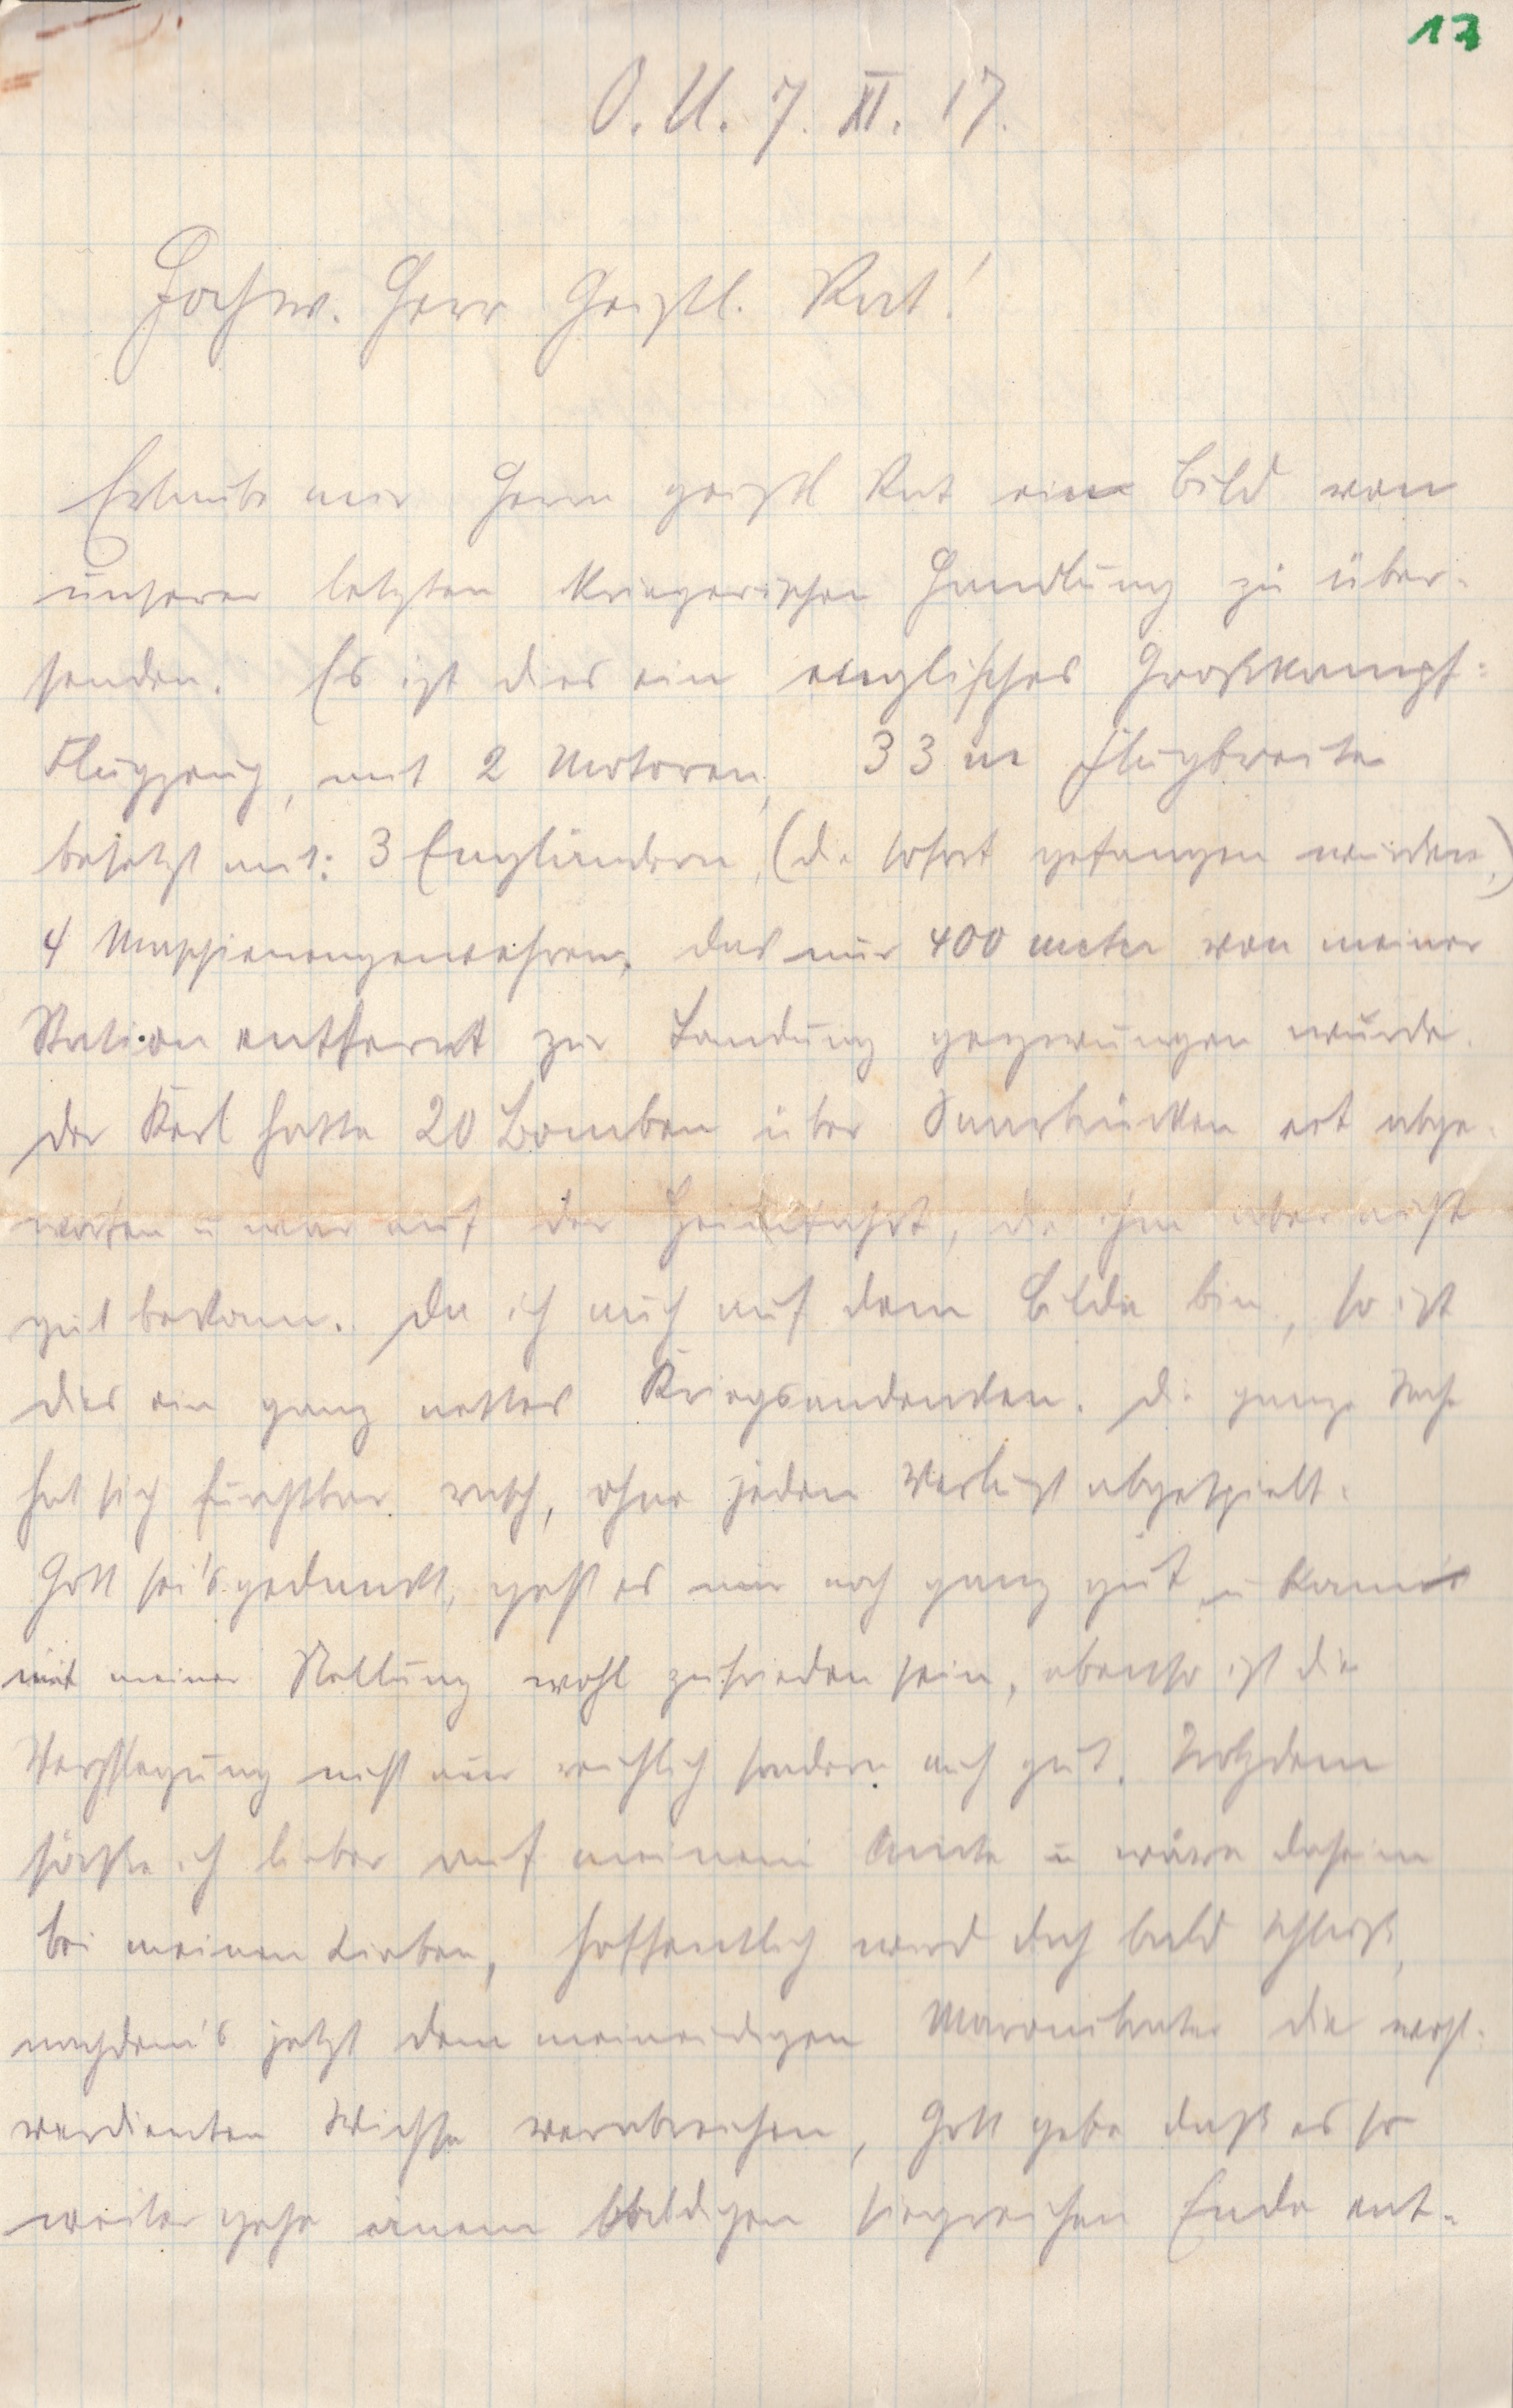 13
O. U. 7. XI. 17.
Hochw. Herr Geistl. Rat!
Erlaube mir Herrn geistl Rat ein Bild von
unserer letzten kriegerischen Handlung zu über-
senden. Es ist dies ein englisches Großkampf-
Flugzeug, mit 2 Motoren, 33 m Flugbreite
besetzt mit: 3 Engländern, (die sofort gefangen wurden,)
4 Maschienengewehren, das nur 400 meter von meiner
Station entfernt zur Landung gezwungen wurde.
Der Kerl hatte 20 Bomben über Saarbrücken abge-
worfen u war auf der Heimfahrt, die ihm aber nicht
gut bekam. Da ich auch auf dem Bilde bin, so ist
dies ein ganz nettes Kriegsandenken. Die ganze Sache
hat sich furchtbar rasch, ohne jeden Verlust abgespielt.
Gott sei's gedankt, geht es mir noch ganz gut u kann
mit meiner Stellung wohl zufrieden sein, ebenso ist die
Verpflegung nicht nur reichlich sondern auch gut. Trotzdem
säße ich lieber auf meinem Amte u wäre daheim
bei meinen Lieben, hoffentlich wird doch bald Schluß,
nachdem's jetzt dem meineidigen die wohl-
verdienten Wichse verabreichen, Gott gebe daß es so
weiter gehe einem baldigen siegreichen Ende ent-